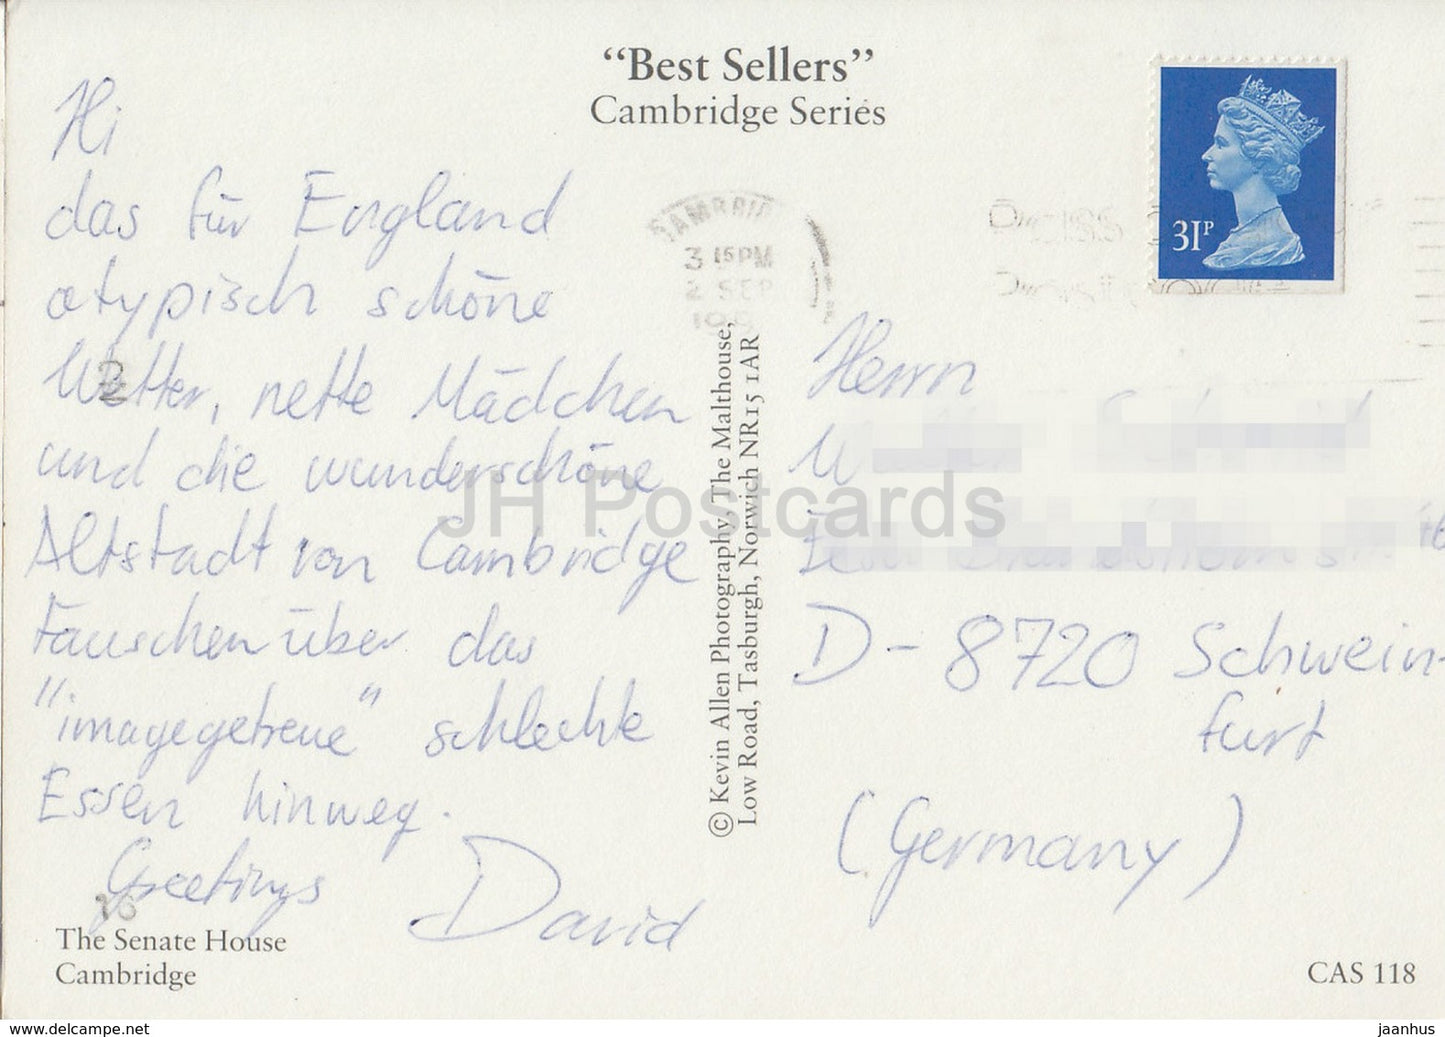 “Best Sellers”
Cambridge Series
Hi
das für England
atypisch schöne
Wetter, nette Mädchen
und die wunderschöne
Altstadt von Cambridge
täuschen über das
"imagegetreue" schlechte
Essen hinweg.
Greetings David
The Senate House
Cambridge
© Kevin Allen Photography, The Malthouse,
Low Road, Tasburgh, Norwich NR15 1AR
3 15 PM
2 SEP
31P
Herrn
D-8720 Schwein-
furt
(Germany)
CAS 118
JH Postcards
www.delcampe.net
jaanhus